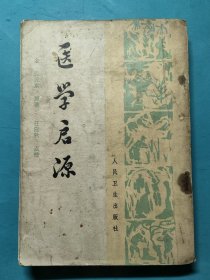 医学启源
人民卫生出版社